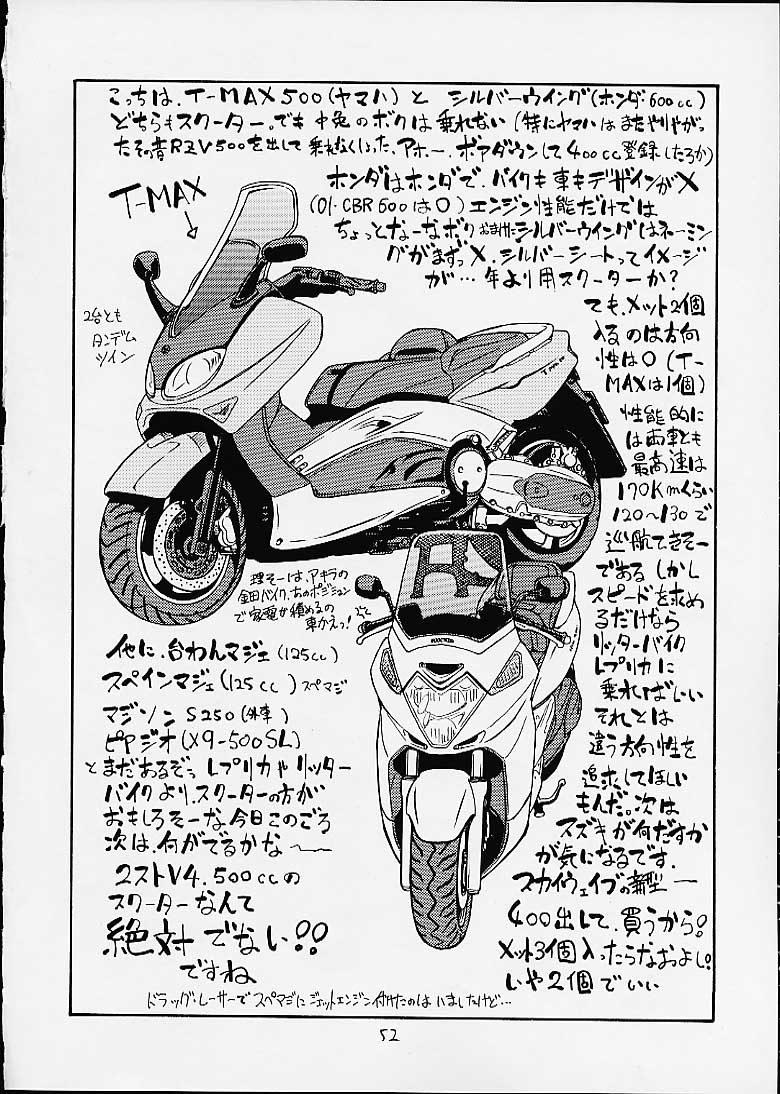 こっちは、T-MAX500(ヤマハ)と シルバーウイング(ホンダ・600cc)
どちらもスクーター。でも中免のボクは乗れない(特にヤマハはまたやりやがっ
たその昔RZV500を出して乗れなくしといた、アホー、ボアダウンして400cc登録したろか)
ホンダはホンダで、バイクも車もデザインが×
(01・CBR600は○)エンジン性能だけでは
ちょっとなーなボク おまけにシルバーウイングはネーミン
グがまずっ×、シルバーシートってイメージ
が…年より用スクーターか?
T-MAX
2台とも
タンデム
ツイン
でも、メット2個
入るのは方向
性は○(T-
MAXは1個)
性能的に
は両車とも
最高速は
170Kmくらい
120〜130で
巡航できそー
である しかし
スピードを求め
るだけなら
リッターバイク
レプリカに
乗ればいい
それとは
違う方向性を
追求してほしい
もんだ。次は
スズキが何だすか
が気になるです.
スカイウェイブの新型ー
400出して、買うから!
メット3個入ったらなおよし!
いや2個でいい
理そーは、アキラの
金田バイク、あのポジション
で家電が積めるの
車かえっ!
他に、台わんマジェ(125cc)
スペインマジェ(125cc)スペマジ
マジソン S250(外車)
ピヤジオ(X9-500SL)
とまだあるぞっ レプリカやリッター
バイクより、スクーターの方が
おもしろそーな今日このごろ
次は、何がでるかな〜
2ストV4.500ccの
スクーターなんて
絶対でない!!
ですね
ドラッグ・レーサーで スペマジに ジェットエンジン付けたのは いましたけど…
52